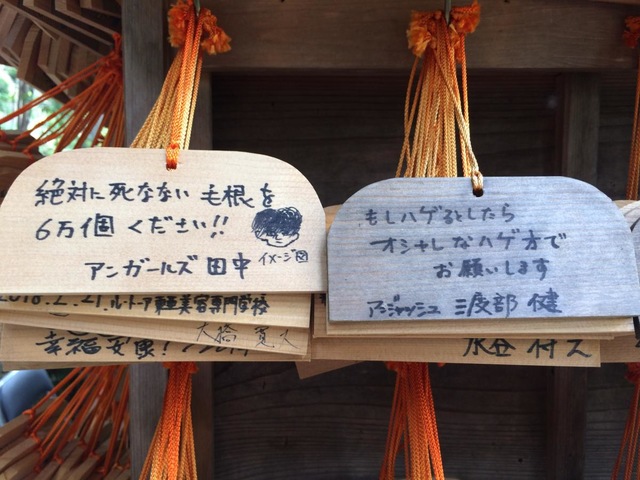 絶対に死なない毛根を
6万個ください!!
イメージ図
アンガールズ 田中
2018.2.21.ルトーア東亜美容専門学校
大橋 寛
もしハゲるとしたら
オシャレなハゲ方で
お願いします
アンジャッシュ 渡部 健
水谷